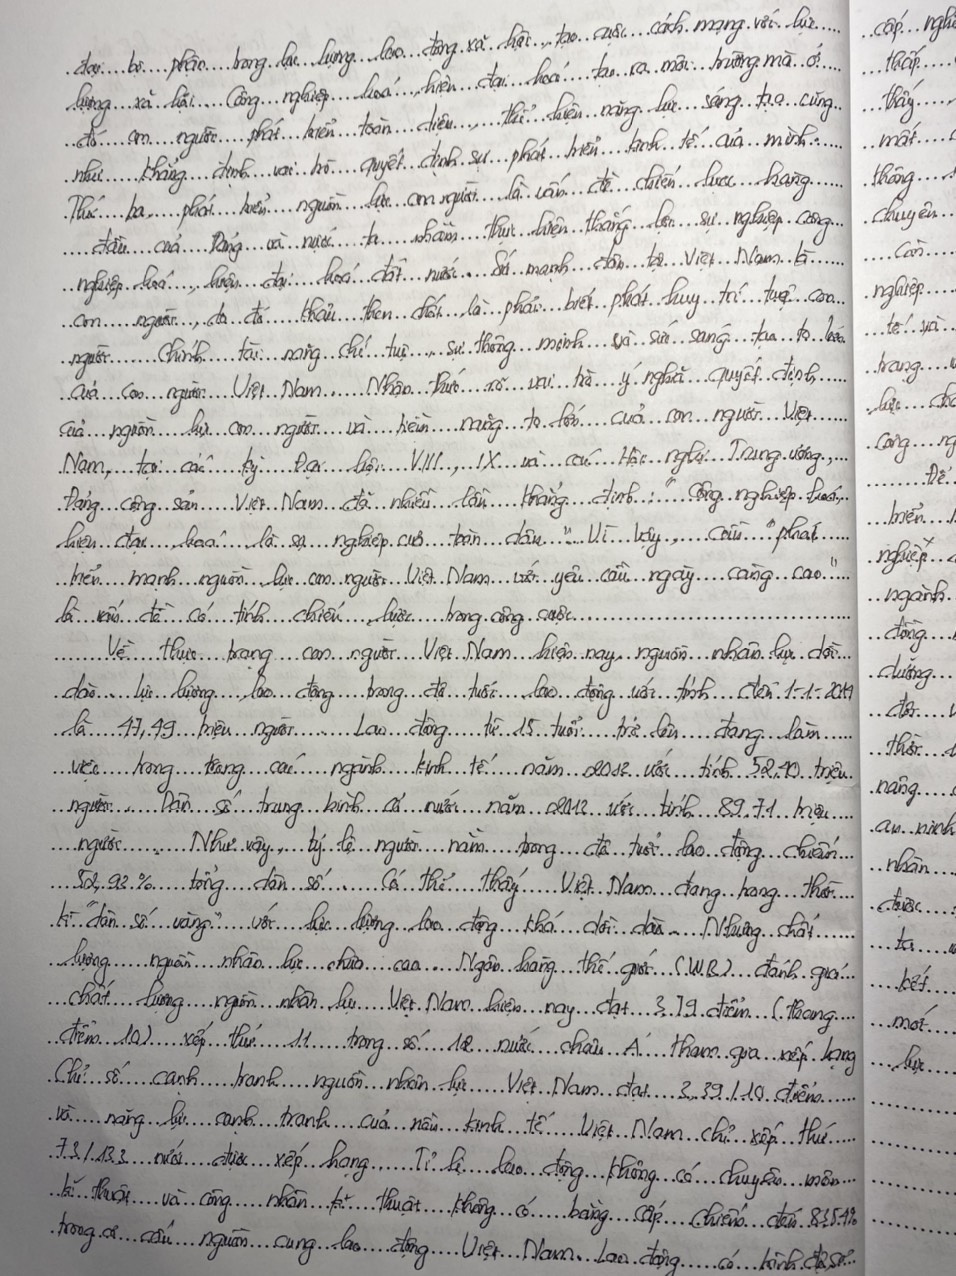 đại bộ phận trong lực lượng lao động xã hội, tạo cuộc cách mạng với lực
lượng xã hội. Công nghiệp hoá, hiện đại hoá tạo ra môi trường mà ở
đó con người phát triển toàn diện, thể hiện năng lực sáng tạo cũng
như khẳng định vai trò quyết định sự phát triển kinh tế của mình.
Thứ ba, phát triển nguồn lực con người là vấn đề chiến lược hàng
đầu của Đảng và nước ta nhằm thực hiện thắng lợi sự nghiệp công
nghiệp hoá, hiện đại hoá đất nước. Sức mạnh dân tộc Việt Nam là
con người, do đó khâu then chốt là phải biết phát huy trí tuệ con
người. Chính tài năng trí tuệ, sự thông minh và sức sáng tạo to lớn
của con người Việt Nam. Nhận thức rõ vai trò ý nghĩa quyết định
của nguồn lực con người và tiềm năng to lớn của con người Việt
Nam, tại các kỳ Đại hội VIII, IX và các Hội nghị Trung ương,
Đảng cộng sản Việt Nam đã nhiều lần khẳng định: "Công nghiệp hoá,
hiện đại hoá là sự nghiệp của toàn dân". Vì vậy, cần "phát
triển mạnh nguồn lực con người Việt Nam với yêu cầu ngày càng cao"
là vấn đề có tính chiến lược trong công cuộc
Về thực trạng con người Việt Nam hiện nay, nguồn nhân lực dồi
dào, lực lượng lao động trong độ tuổi lao động ước tính đến 1-1-2014
là 47,49 triệu người. Lao động từ 15 tuổi trở lên đang làm
việc trong các ngành kinh tế năm 2012 ước tính 52,40 triệu
người. Dân số trung bình cả nước năm 2012 ước tính 89,71 triệu
người. Như vậy, tỷ lệ người nằm trong độ tuổi lao động chiếm
52,93% tổng dân số. Có thể thấy Việt Nam đang trong thời
kì "dân số vàng" với lực lượng lao động khá dồi dào. Nhưng chất
lượng nguồn nhân lực chưa cao. Ngân hàng thế giới (WB) đánh giá
chất lượng nguồn nhân lực Việt Nam hiện nay đạt 3,79 điểm (thang
điểm 10) xếp thứ 11 trong số 12 nước châu Á tham gia xếp hạng
Chỉ số cạnh tranh nguồn nhân lực Việt Nam đạt 3,39/10 điểm
và năng lực cạnh tranh của nền kinh tế Việt Nam chỉ xếp thứ
73/133 nước được xếp hạng. Tỉ lệ lao động không có chuyên môn
kĩ thuật và công nhân kĩ thuật không có bằng cấp chiếm đến
trong cơ cấu nguồn cung lao động Việt Nam. Lao động có trình độ
cấp
thấp
thấy
mất
thông
chuyên
Cần
nghiệp
tế và
trang
lực
công
Để
triển
nghiệp
ngành
động
dưỡng
đời
thời
năng
an ninh
nhân
được
ta
kết
mới
lực